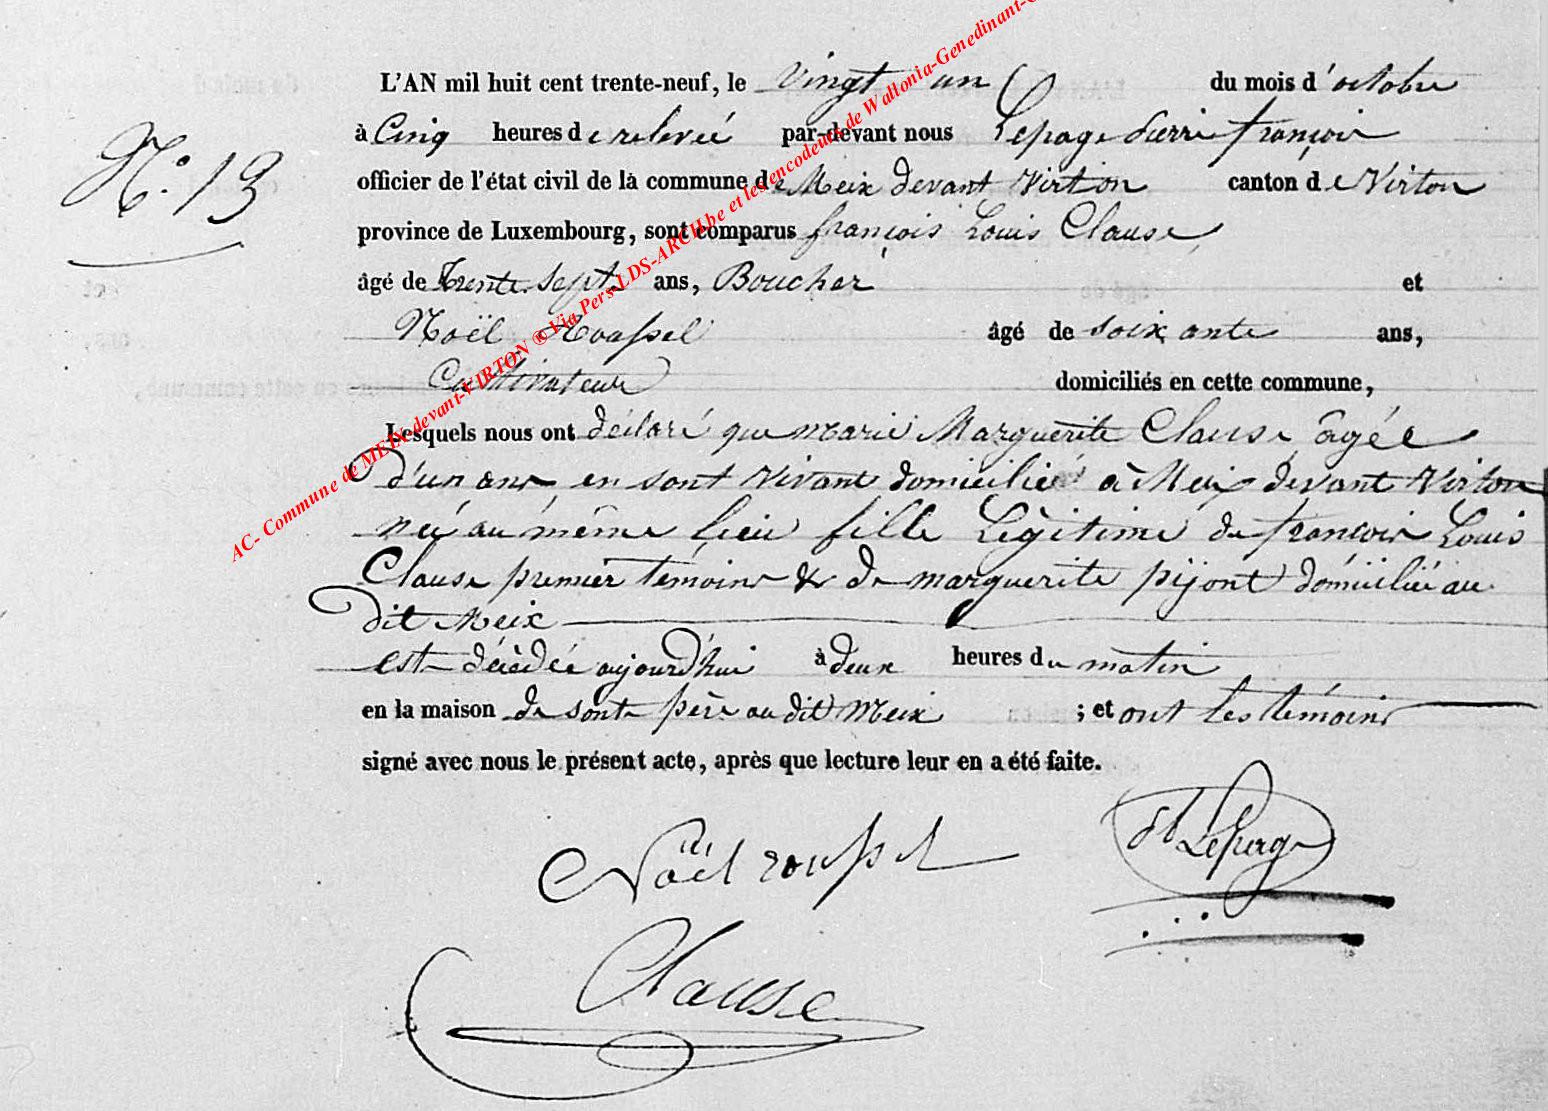 L'AN mil huit cent trente-neuf, le Vingt un du mois d'octobre
N.° 13
à Cinq heures de relevée par-devant nous Lepage Pierre françois
officier de l'état civil de la commune de Meix devant Virton canton de Virton
province de Luxembourg, sont comparus françois Louis Clause,
âgé de trente sept ans, Boucher et
Noël Roussel âgé de soixante ans,
Cultivateur domiciliés en cette commune,
Lesquels nous ont déclaré que marie Marguerite Clause, âgée
D'un ans en sont vivant domicilié à Meix devant Virton
née au même lieu fille Légitime de françois Louis
Clause premier témoins & de marguerite pijont domicilié au
dit Meix
est décédée aujourd'hui à deux heures du matin
en la maison de sont père au dit Meix ; et ont les témoins
signé avec nous le présent acte, après que lecture leur en a été faite.
Noël roussel Lepage
Clause
AC- Commune de MEIX-devant-VIRTON ® Via Pers-LDS-ARCH.be et les encodeurs de Wallonia-Genedinant-